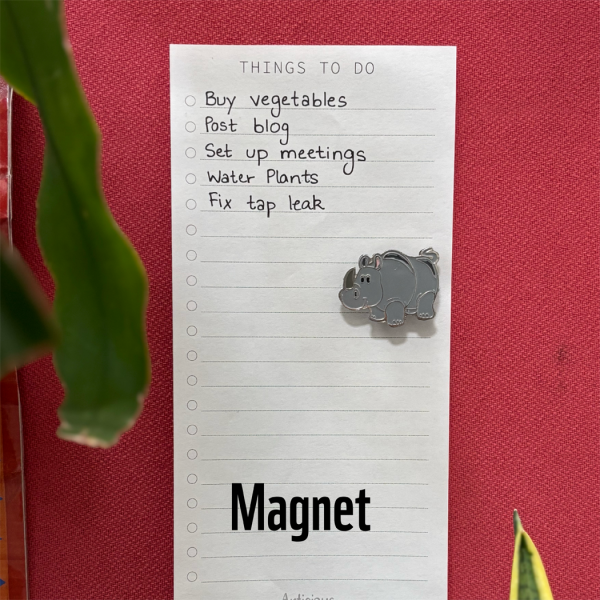 THINGS TO DO
Buy vegetables
Post blog
Set up meetings
Water Plants
Fix tap leak
Magnet